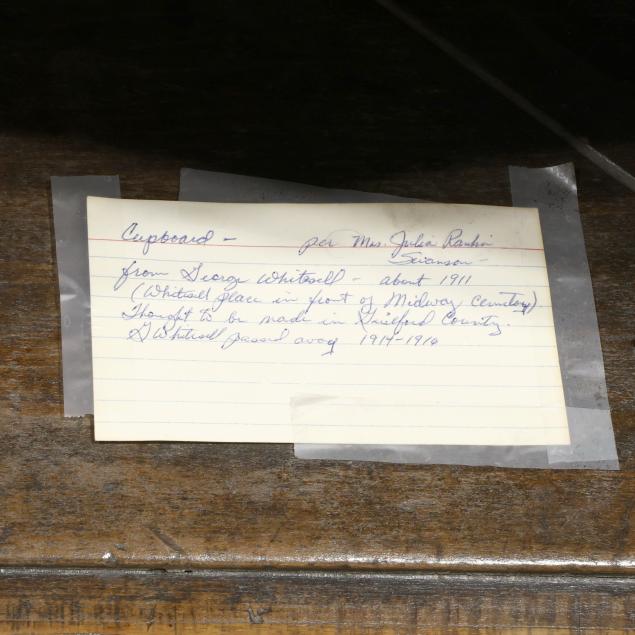 Cupboard - per Mrs. Julia Rankin
Swanson -
from George Whitesell - about 1911
(Whitesell place in front of Midway Cemetery)
Thought to be made in Guilford County.
G Whitesell passed away 1914-1916